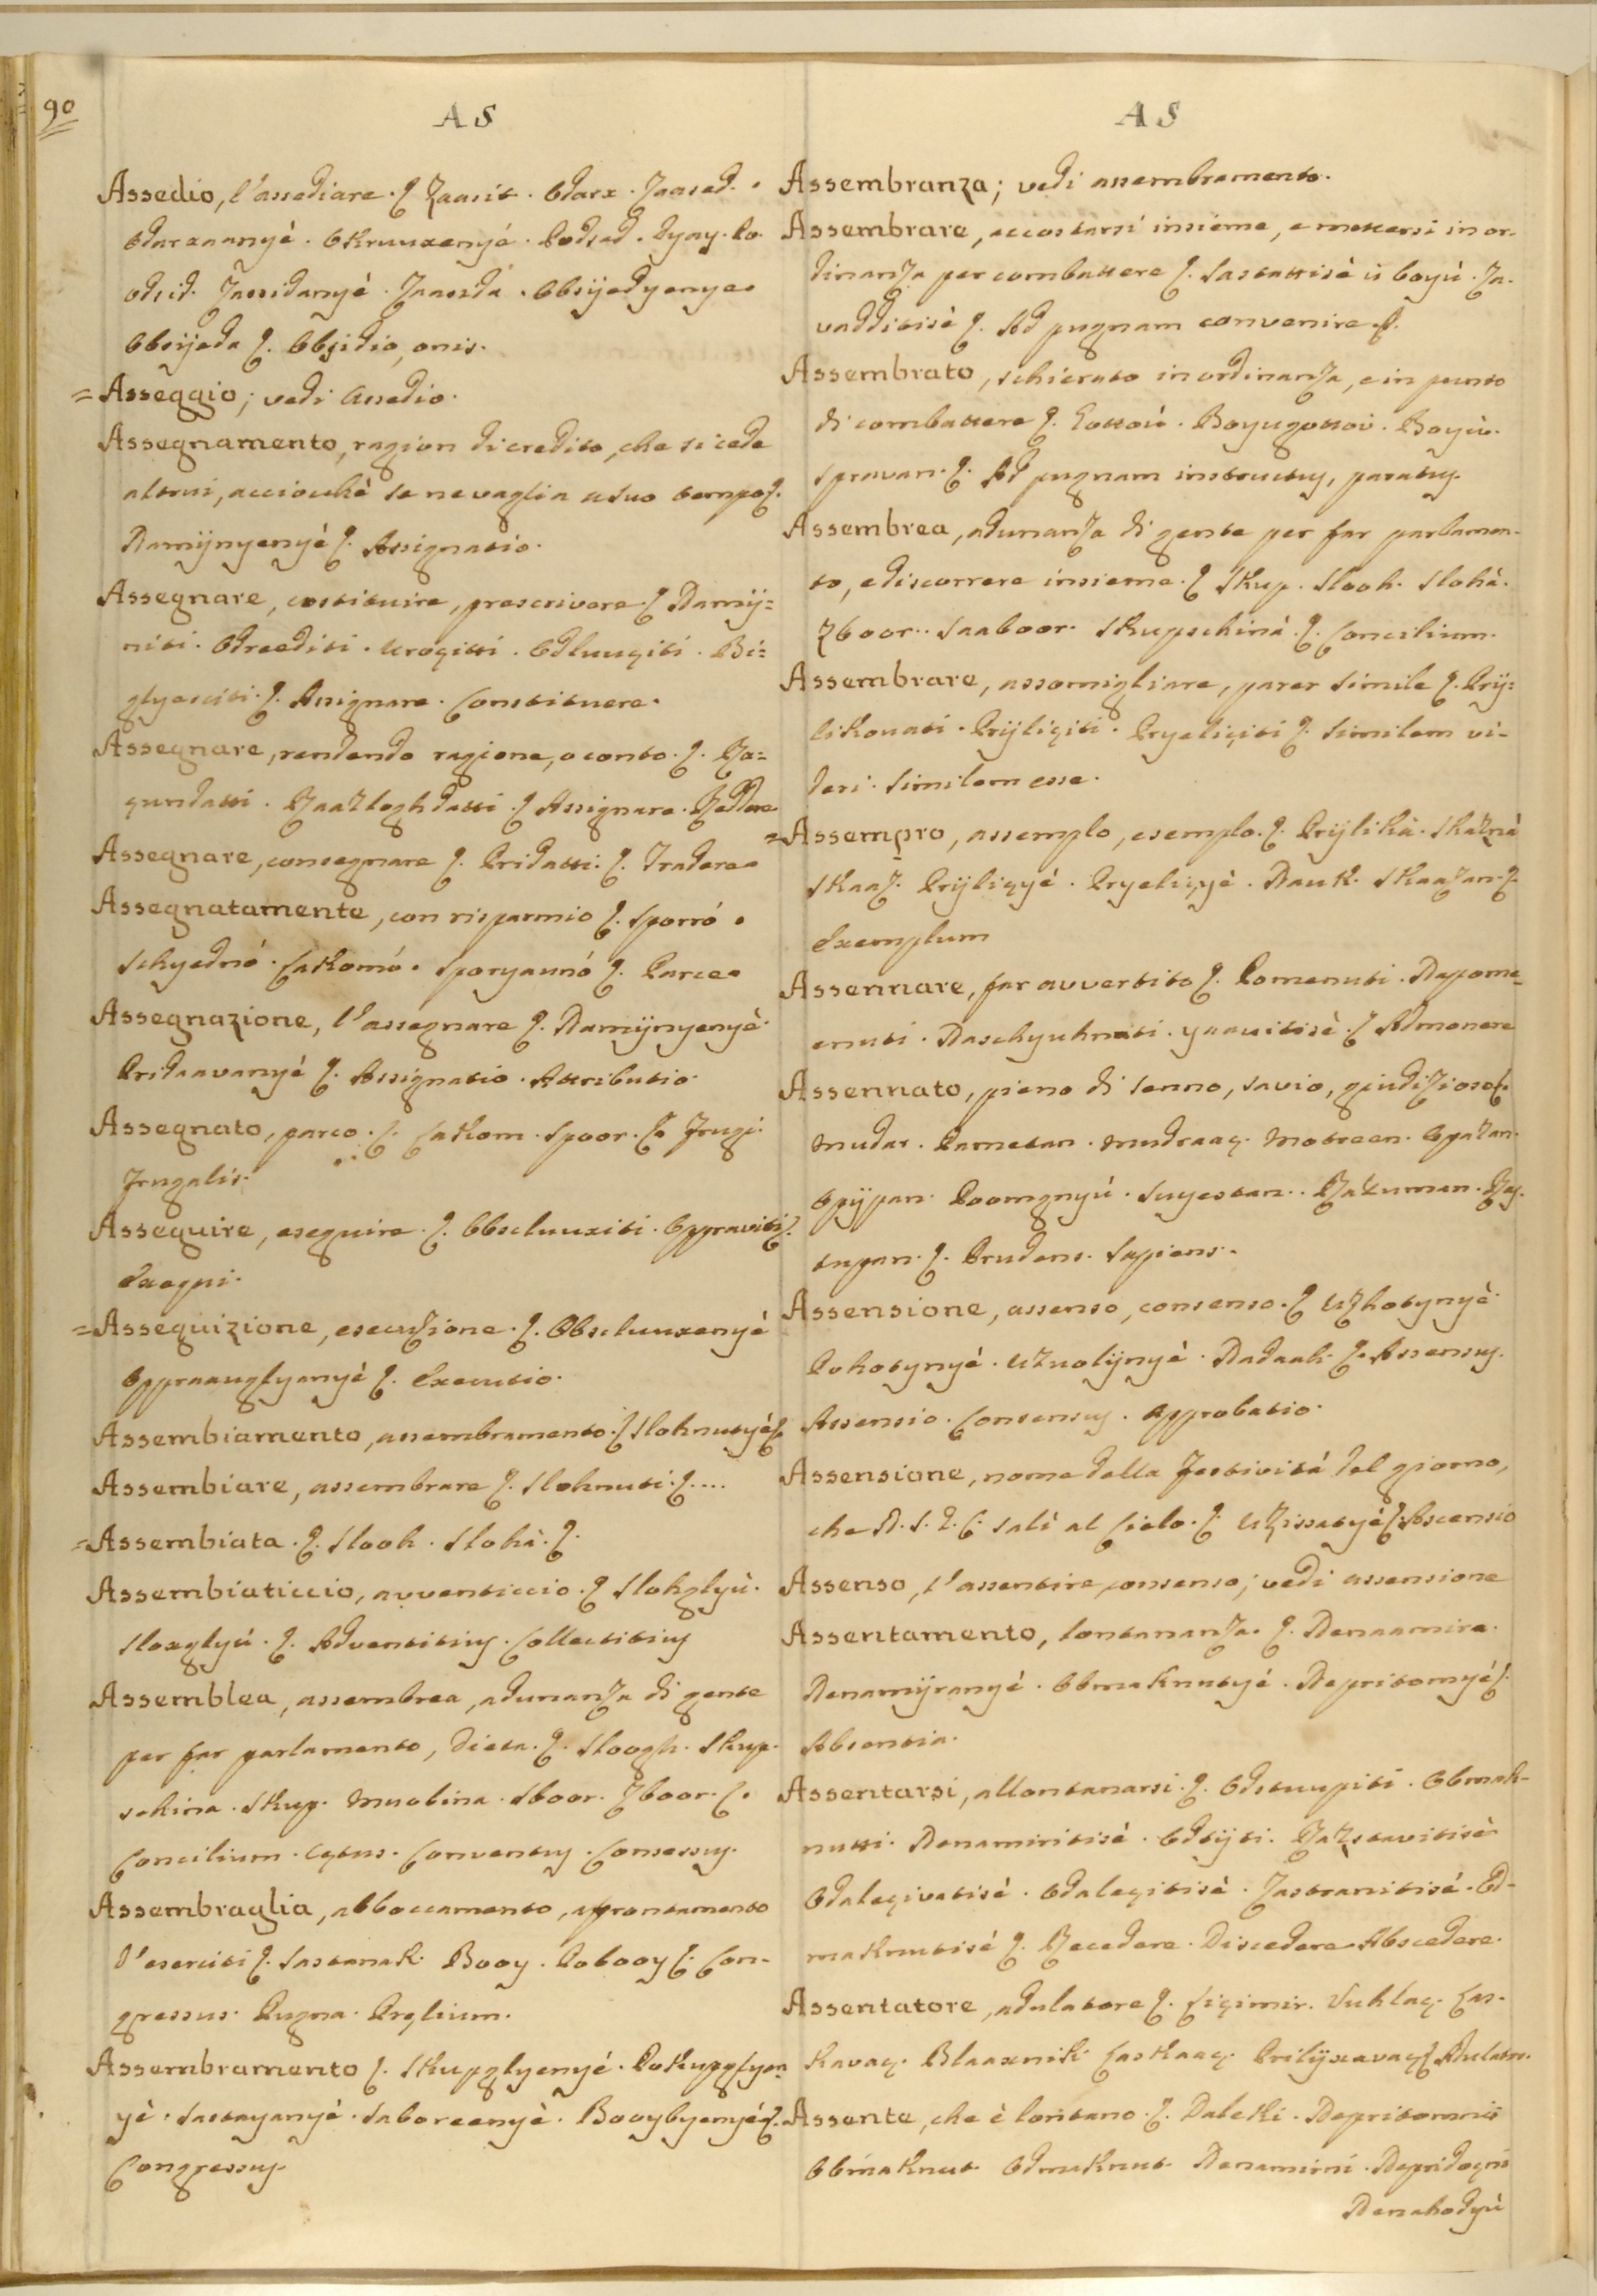 90
AS
Assedio, l'assediare. ꝭ Zaasit. Odarx. Zaased.
Odarxananyè. Okruuxenyé. Podsed. Dyay. Po
odsid. Zassidanyè. Zaasda. Obsijedyenye
Obsijeda ꝭ. Obsidio, onis.
= Asseggio; vedi Assedio.
Assegnamento, ragion di credito, che si cede
altrui, acciochè se ne vaglia a suo tempo ꝭ.
Namijnyenyé ꝭ. Assignatio.
Assegnare, costituire, prescrivere. ꝭ Namij=
niti. Odreediti. Urogitti. Odluugiti. Bi=
glyesciti. ꝭ. Assignare. Constituere.
Assegnare, rendendo ragione, o conto. ꝭ. Ra=
gundatti. Raazloghdatti. ꝭ Assignare. Reddere
Assegnare, consegnare ꝭ. Pridatti. ꝭ. Tradere
Assegnatamente, con risparmio ꝭ. Sporró.
Schyednó. Lakomó. Sporyaunó ꝭ. Parce
Assegnazione, l'assegnare ꝭ. Namijnyenyè.
Pridaavanyé ꝭ. Assignatio. Attributio.
Assegnato, parco. ꝭ. Lakom. Spoor. ꝭ Frugi.
Frugalis.
Asseguire, eseguire. ꝭ. Obscluuxiti. Oppraviti ꝭ.
Exequi.
= Assequizione, esecuzione. ꝭ. Obscluuxenyé
Oppraauglyanyé ꝭ. Executio.
Assembiamento, assembramento. ꝭ Slohnutyé ꝭ
Assembiare, assembrare ꝭ. Slohnuti. ꝭ....
= Assembiata. ꝭ. Slooh. Slohà. ꝭ.
Assembiaticcio, avventiccio. ꝭ Slohglyù.
Sloxglyú. ꝭ. Adventitius. Collectitius
Assemblea, assembrea, adunanza di gente
per far parlamento, Dieta. ꝭ. Sloogh. Skup-
schina. Skup. Mnobina. Sboor. Zboor. ꝭ.
Concilium. Cętus. Conventus. Consessus.
Assembraglia, abboccamento, affrontamento
d'eserciti ꝭ. Sastanak. Booy. Pobooy ꝭ. Con-
gressus. Pugna. Pręlium.
Assembramento ꝭ. Skupglyenyé. Pokupglyen
yè. Sastayanyè. Saboreenyè. Booybyenyé ꝭ.
Congressus.
AS
Assembranza; vedi assembramento.
Assembrare, accostarsi insieme, e mettersi in or-
dinanza per combattere ꝭ. Sastattisè ù boyù. Za-
vadditisè ꝭ. Ad pugnam convenire
Assembrato, schierato in ordinanza, e in punto
di combattere ꝭ. Gottoú. Boyugottoú. Boyù-
spravan. ꝭ. Ad pugnam instructus, paratus.
Assembrea, adunanza di gente per far parlamen-
to, e discorrere insieme. ꝭ Skup. Slooh. Slohà.
Zboor. Saaboor. Skupschinà. ꝭ. Concilium.
Assembrare, assomigliare, parer simile ꝭ. Prij=
likovati. Prijligiti. Pryeligiti ꝭ. Similem vi-
deri. Similem esse.
= Assempro, assemplo, esemplo. ꝭ. Prijlikà. Skaznà
Skaaz. Prijligyé. Pryeligyè. Nauk. Skaazan. ꝭ.
Exemplum
Assennare, far avvertito ꝭ. Pomenuti. Napome-
enuti. Naschyuhnuti. Yaavitisè. ꝭ Admonere
Assennato, pieno di senno, savio, giudizioso ꝭ.
Mudar. Pametan. Mudraaç. Motreen. Opazan.
Opijpan. Poomgnyú. Suyestan. Razuman. Raz-
tupan. ꝭ. Prudens. Sapiens.
Assensione, assenso, consenso. ꝭ Uzhotynyè.
Pohotynyé. Uzvolijnyè. Nadaah. ꝭ. Assensus.
Assensio. Consensus. Approbatio.
Assensione, nome della Festività del giorno,
che N. S. G. C. salì al Cielo. ꝭ. Uzissatyè ꝭ. Ascensio
Assenso, l'assentire, consenso; vedi assensione
Assentamento, lontananza. ꝭ. Nenaamira.
Nenamijranyé. Obmaknutyé. Nepritomyé ꝭ.
Absentia.
Assentarsi, allontanarsi. ꝭ. Odstuupiti. Obmak-
nutti. Nenamiritisè. Odtijti. Razstavitisè
Odalegivatisè. Odalegitisè. Zastranitisè. Od-
maknutisè ꝭ. Recedere. Discedere. Abscedere.
Assentatore, adulatore ꝭ. Ligimir. Vuhlaç. Las-
kavaç. Blaaxnik. Laskaaç. Prilijxavaç ꝭ Adulator.
Assente, che è lontano. ꝭ. Daleki. Nepritomnii
Obmaknut. Odmaknut. Nenamirni. Nepridoçni
Nenahodyù